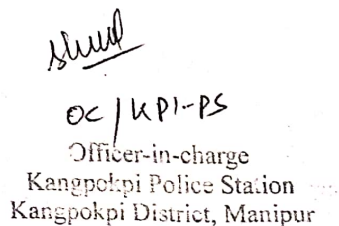 OC/KPI-PS
Officer-in-charge
Kangpokpi Police Station
Kangpokpi District, Manipur